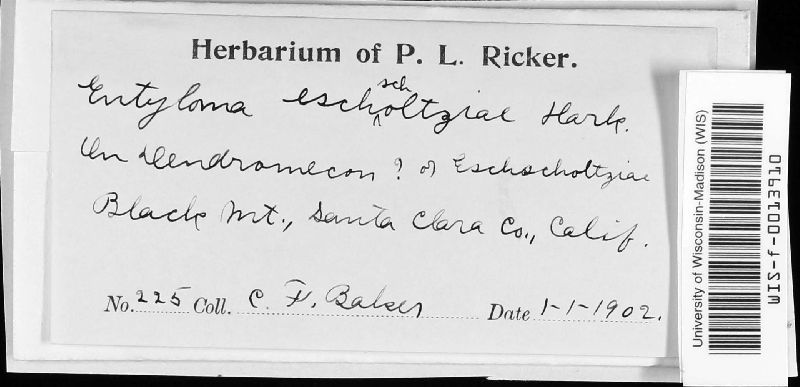 Herbarium of P. L. Ricker.
Entyloma eschscholtziae Hark.
On Dendromecon ? or Eschscholtziae
Black Mt., Santa Clara Co., Calif.
No. 225 Coll. C. F. Baker Date 1-1-1902.
University of Wisconsin-Madison (WIS)
WIZ-f-0013910